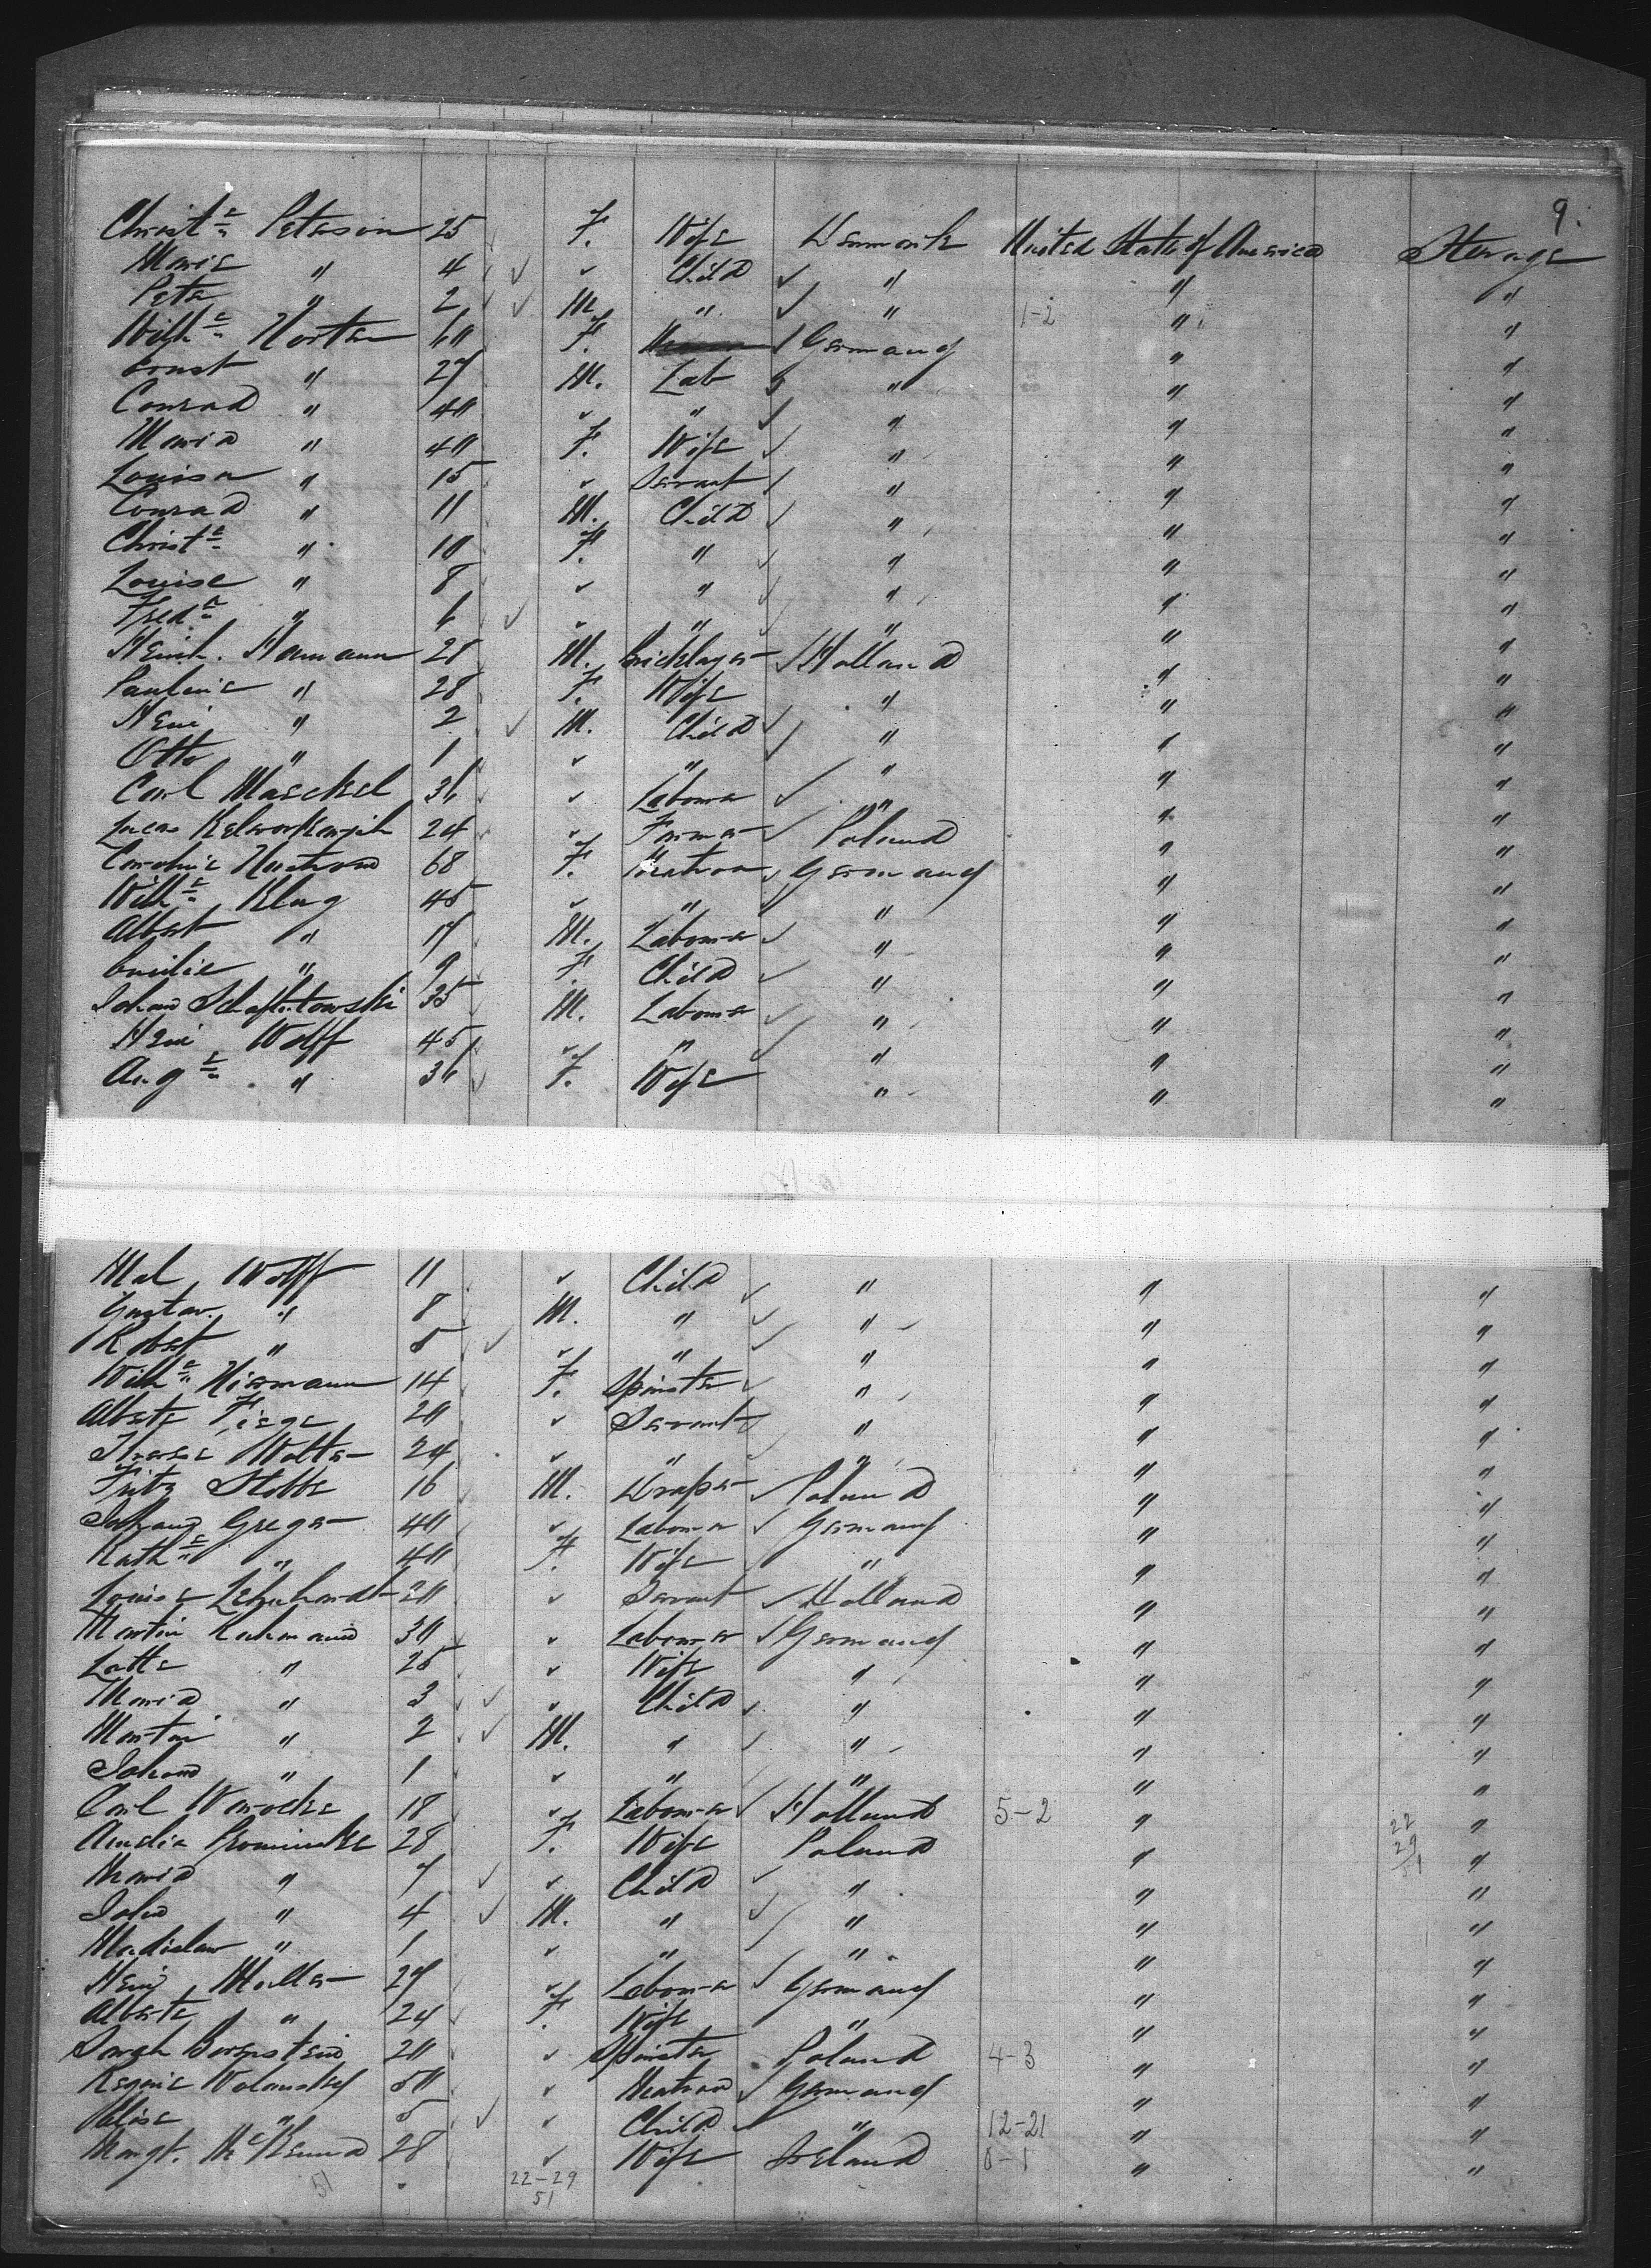 9.
Christ<sup>e</sup> Peterson 25 F. Wife Denmark United State of America Steerage
Marie " 4 ✓ ✓ Child ✓ " " "
Peter " 2 ✓ M " ✓ " 1-2 " "
Wilh<sup>e</sup> Horter 60 F. ✓ Germany " "
Ernst " 27 M. Lab " " "
Conrad " 40 ✓ " ✓ " " "
Maria " 40 F. Wife ✓ " " "
Louisa " 15 ✓ Servant ✓ " " "
Conrad " 11 M. Child ✓ " " "
Christ<sup>e</sup> " 10 F. " ✓ " " "
Louise " 8 ✓ " ✓ " " "
Fred<sup>e</sup> " 6 ✓ ✓ " ✓ " " "
Heinh. Hamann 28 M. Bricklayer ✓ Holland " "
Pauline " 28 F. Wife " " "
Heni " 2 ✓ M. Child ✓ " " "
Otto " 1 ✓ " ✓ " " "
Carl Maeckel 36 ✓ Labourer ✓ " " "
Lucas 24 ✓ Farmer ✓ Poland " "
Caroline 68 F. Matron ✓ Germany " "
Wilh<sup>e</sup> Klug 45 ✓ " ✓ " " "
Albert " 17 M. Labourer ✓ " " "
Emilie " 9 F. Child ✓ " " "
Johan 35 M. Labourer ✓ " " "
Heni Wolff 45 ✓ " ✓ " " "
Aug<sup>e</sup> " 36 ✓ F. Wife " " "
Mal Wolff 11 ✓ Child ✓ " " "
Gustav. " 8 M. " ✓ " " "
Robert " 5 ✓ ✓ " ✓ " " "
Wilh<sup>e</sup> Hismann 14 F. Spinster ✓ " " "
Alberte Fiege 20 ✓ Servant ✓ " " "
Therese Wolter 24 ✓ " ✓ " " "
Fritz Stobbe 16 M. Draper ✓ Poland " "
Johann Greger 40 ✓ Labourer ✓ Germany " "
Kath<sup>e</sup> " 40 F. Wife ✓ " " "
Louise Lehnhardt 20 ✓ Servant ✓ Holland " "
Martin Kahmann 30 ✓ Labourer ✓ Germany " "
Lotte " 25 ✓ Wife " " "
Maria " 3 ✓ ✓ Child ✓ " " "
Martin " 2 ✓ M. " ✓ " " "
Johann " 1 ✓ " ✓ " " "
Carl 18 ✓ Labourer ✓ Holland 5-2 " 22 "
Amelia 28 F. Wife Poland " 29 "
51
Maria " 7 ✓ ✓ Child ✓ " " "
John " 4 ✓ M. " ✓ " " "
Wladislaw " 1 ✓ " ✓ " " "
Heni Moller 27 ✓ Labourer ✓ Germany " "
Alberte " 24 F. Wife " " "
Sarah Bornstein 20 ✓ Spinster Poland 4-3 " "
Regine 50 ✓ Matron ✓ Germany " "
Elise " 5 ✓ ✓ Child ✓ " 12-21 " "
Margt. 28 ✓ Wife Ireland 0-1 " "
51 22-29
51